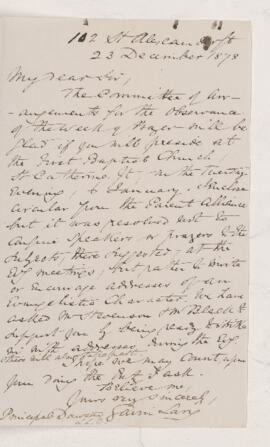 102 St Alexander St
23 December 1878
My dear Sir,
The Committee of Arr-
angements for the Observance
of the Week of Prayer will be
glad if you will preside at
the First Baptist Church,
St Catherine St. on the Tuesday
Evening 6 January. I enclose
circular from the Parent Alliance
but it was resolved not to
confine speakers or prayers to the
subjects there suggested, at the
Eve meetings, but rather to invite
or encourage addresses of an
Evangelistic Character. We have
asked Mr Stevenson & Mr Black to
support you by being ready to
with addresses during the Eve
I hope we may count upon
your doing the part I ask.
Believe me,
Yours very sincerely,
Principal Dawson